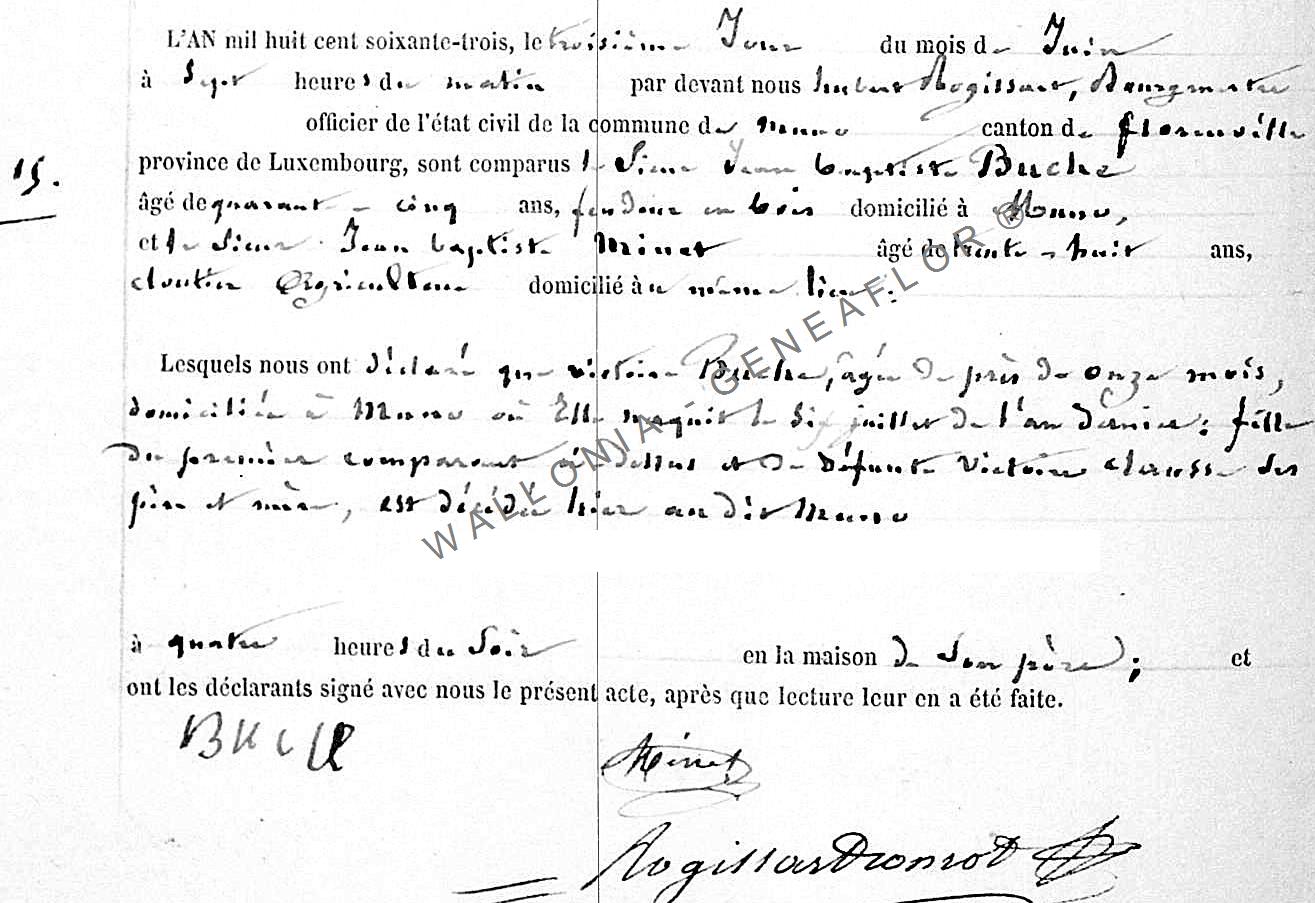 L'AN mil huit cent soixante-trois, le troisième Jour du mois de Juin
à Sept heures du matin par devant nous hubert Rogissart, Bourgmestre
officier de l'état civil de la commune de Muno canton de florenville
15.
province de Luxembourg, sont comparus le Sieur Jean baptiste Buche
âgé de quarante-cinq ans, fendeur en bois domicilié à Muno,
et le Sieur Jean baptiste Minet âgé de trente-huit ans,
cloutier Agriculteur domicilié au même lieu;
Lesquels nous ont déclaré que victoire Buche, âgée de près de onze mois,
domiciliée à Muno où Elle naquit le juillet de l'an dernier: fille
du premier comparant ci-dessus et de Défunte victoire Ses
père et mère, est décédée hier au dit Muno
WALLONIA - GENEAFLOR ®
à quatre heures du Soir en la maison de Son père; et
ont les déclarants signé avec nous le présent acte, après que lecture leur en a été faite.
Minet